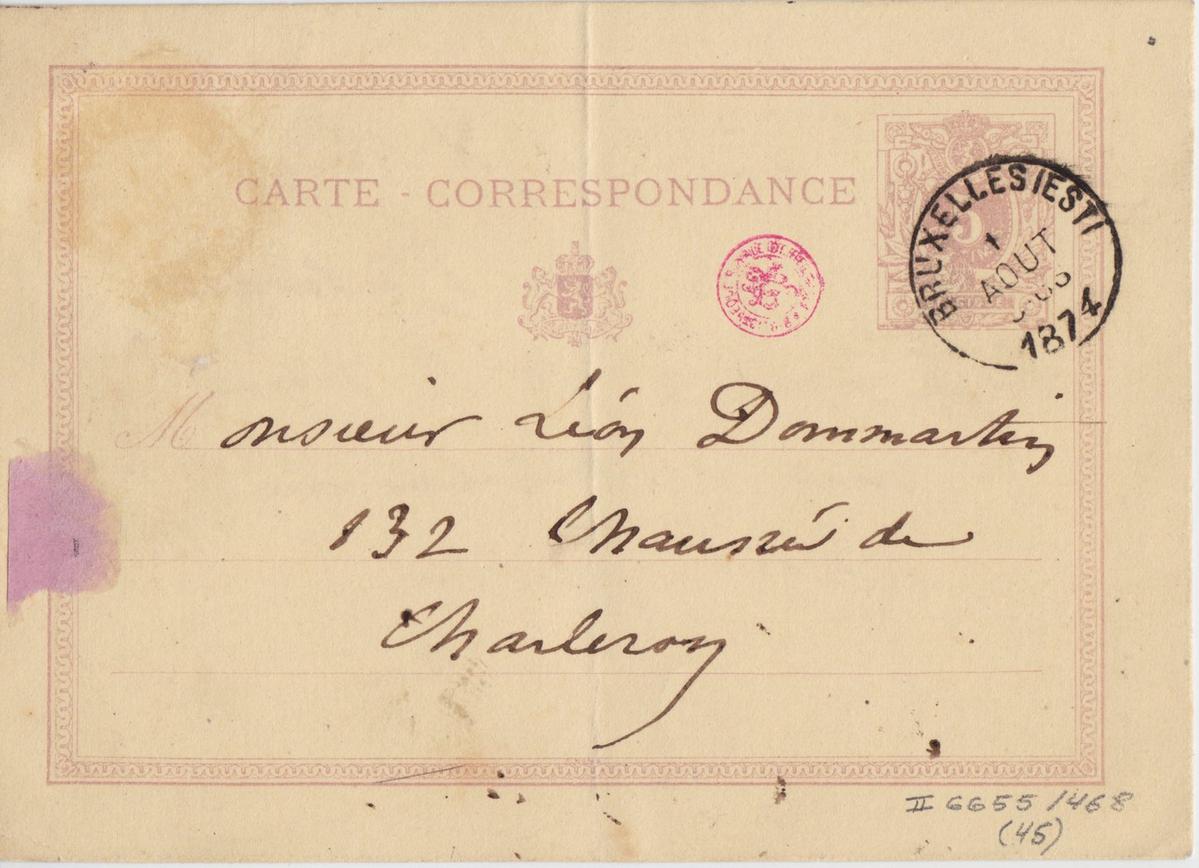 CARTE - CORRESPONDANCE
5
BRUXELLES (EST)
1
AOUT
1874
Monsieur Léon Dommartin
132 Chaussée de
Charleroy
II 6655 / 468
(45)